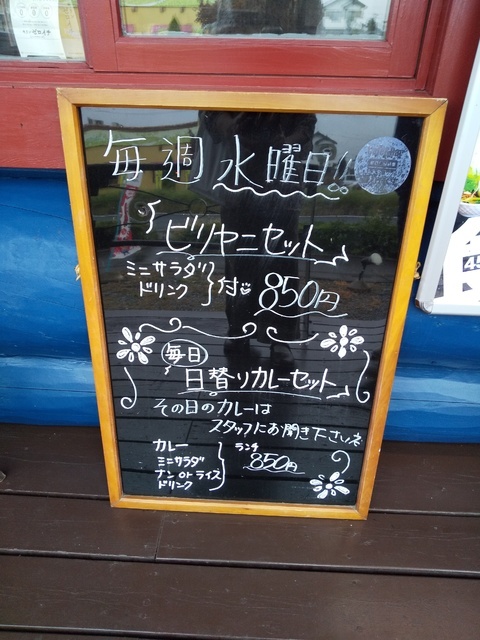 毎週水曜日!!
ビリヤニセット
ミニサラダ
ドリンク
付
850円
毎日
日替りカレーセット
その日のカレーは
スタッフにお聞き下さいネ
カレー
ミニサラダ
ナン or ライス
ドリンク
ランチ
850円